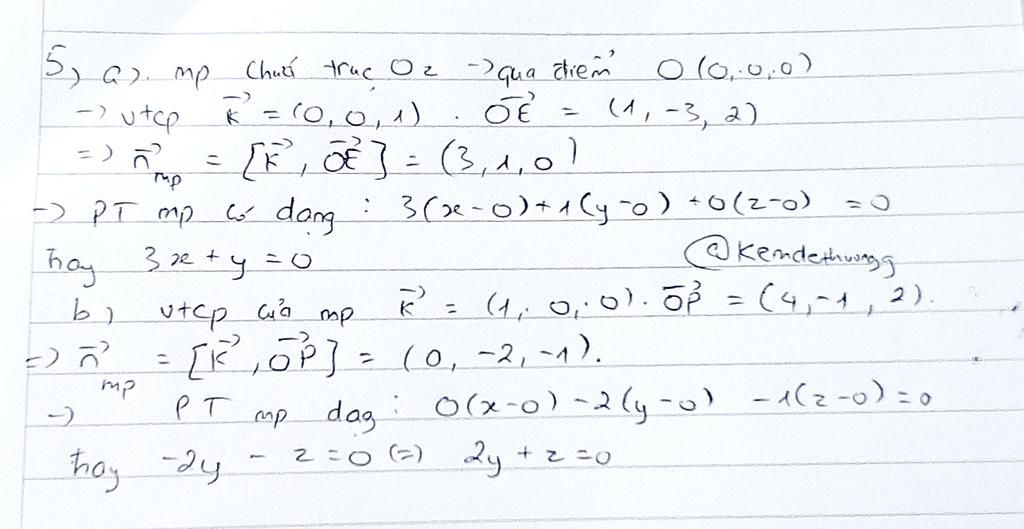 5, a). mp chứa trục Oz -> qua điểm O(0,0,0)
-> vtcp k⃗ = (0,0,1). OE⃗ = (1,-3,2)
=> n⃗mp = [k⃗, OE⃗] = (3,1,0)
-> PT mp có dạng : 3(x-0)+1(y-0)+0(z-0) =0
hay 3x+y=0 @Kendethuongg
b) vtcp của mp k⃗ = (1,0,0). OP⃗ = (4,-1,2).
=> n⃗mp = [k⃗, OP⃗] = (0,-2,-1).
-> PT mp dag: 0(x-0) -2(y-0) -1(z-0)=0
hay -2y - z=0 (=) 2y+z=0